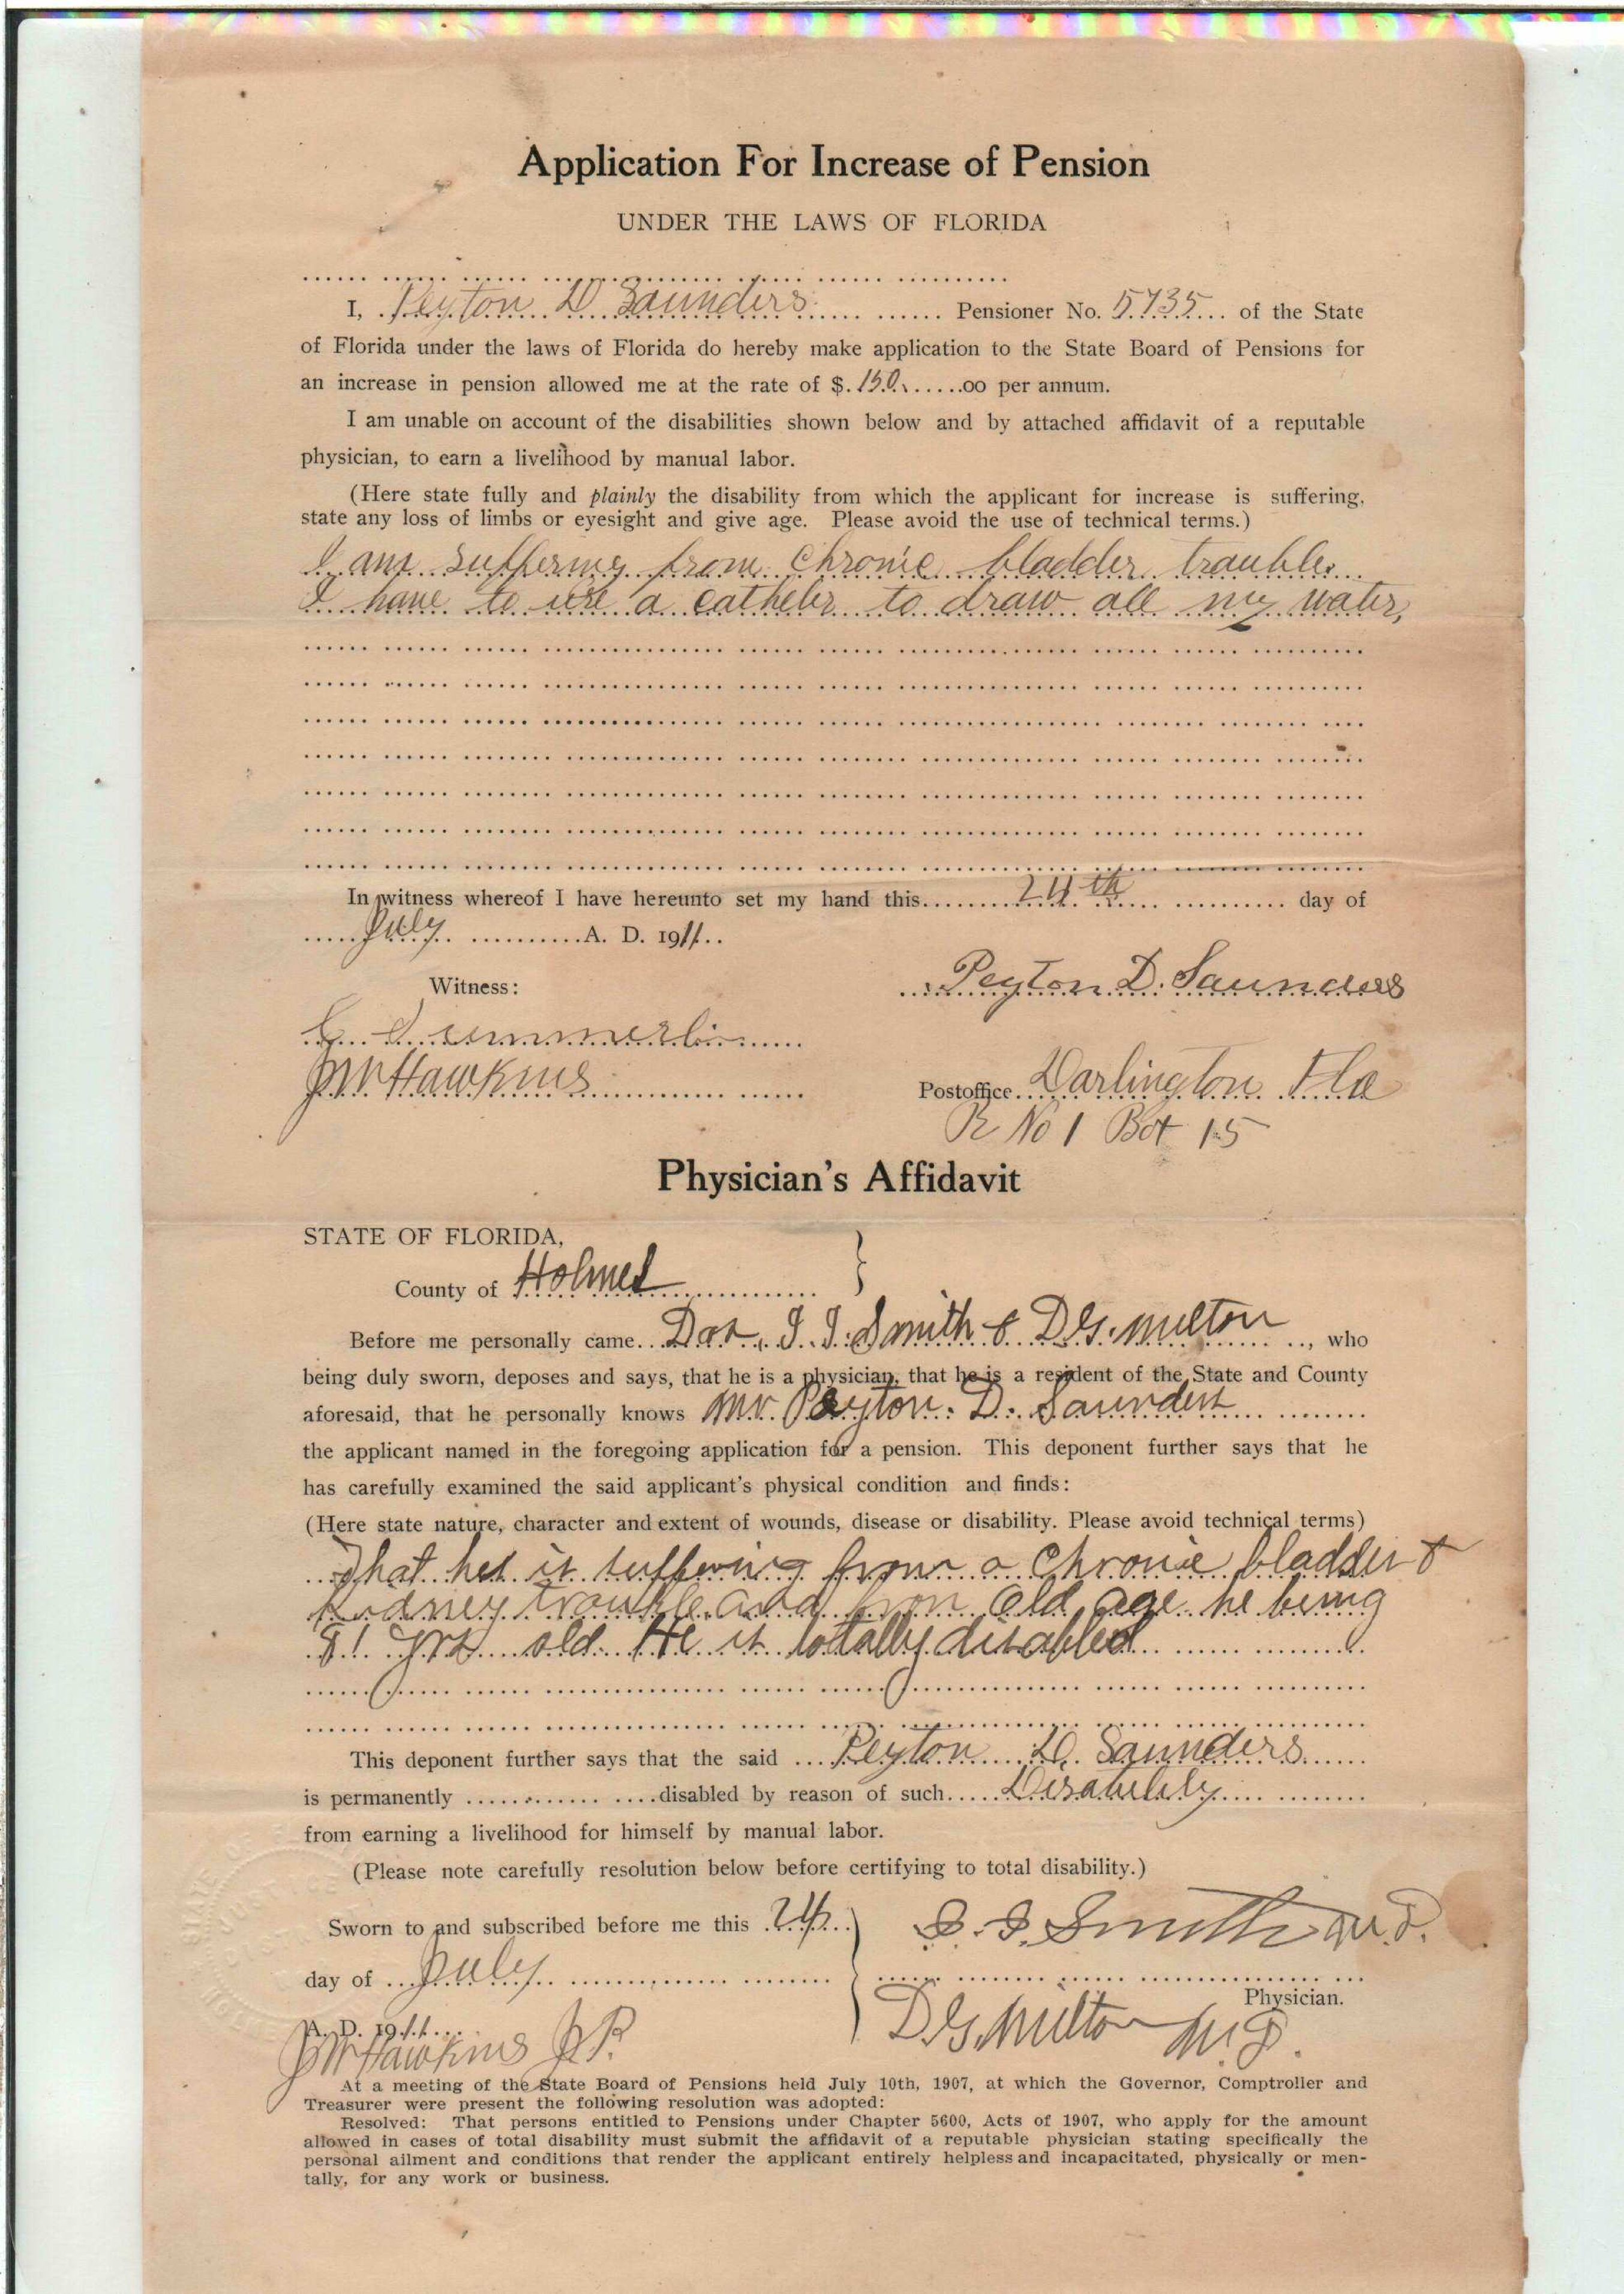 Application For Increase of Pension
UNDER THE LAWS OF FLORIDA
I, Peyton D Saunders Pensioner No. 5735 of the State
of Florida under the laws of Florida do hereby make application to the State Board of Pensions for
an increase in pension allowed me at the rate of $.150......00 per annum.
I am unable on account of the disabilities shown below and by attached affidavit of a reputable
physician, to earn a livelihood by manual labor.
(Here state fully and plainly the disability from which the applicant for increase is suffering,
state any loss of limbs or eyesight and give age. Please avoid the use of technical terms.)
I am suffering from Chronic bladder trouble.
I have to use a catheter to draw all my water,
In witness whereof I have hereunto set my hand this 24th day of
July A. D. 1911..
Witness:
Peyton D. Saunders
C. Summerlin
JW Hawkins
Postoffice Darlington Fla
R No 1 Box 15
Physician's Affidavit
STATE OF FLORIDA,
County of Holmes
Before me personally came Drs. J. J. Smith & D.G. Milton, who
being duly sworn, deposes and says, that he is a physician, that he is a resident of the State and County
aforesaid, that he personally knows Mr. Payton. D. Saunders
the applicant named in the foregoing application for a pension. This deponent further says that he
has carefully examined the said applicant's physical condition and finds:
(Here state nature, character and extent of wounds, disease or disability. Please avoid technical terms)
That he is suffering from a Chronic bladder &
Kidney trouble and from Old age he being
81 yrs old. He is totally disabled
This deponent further says that the said Peyton D. Saunders
is permanently disabled by reason of such Disability
from earning a livelihood for himself by manual labor.
(Please note carefully resolution below before certifying to total disability.)
Sworn to and subscribed before me this 24
J. J. Smith M.D.
day of July
Physician.
A. D. 1911
D.G. Milton M.D.
JW Hawkins J.P.
At a meeting of the State Board of Pensions held July 10th, 1907, at which the Governor, Comptroller and
Treasurer were present the following resolution was adopted:
Resolved: That persons entitled to Pensions under Chapter 5600, Acts of 1907, who apply for the amount
allowed in cases of total disability must submit the affidavit of a reputable physician stating specifically the
personal ailment and conditions that render the applicant entirely helpless and incapacitated, physically or men-
tally, for any work or business.